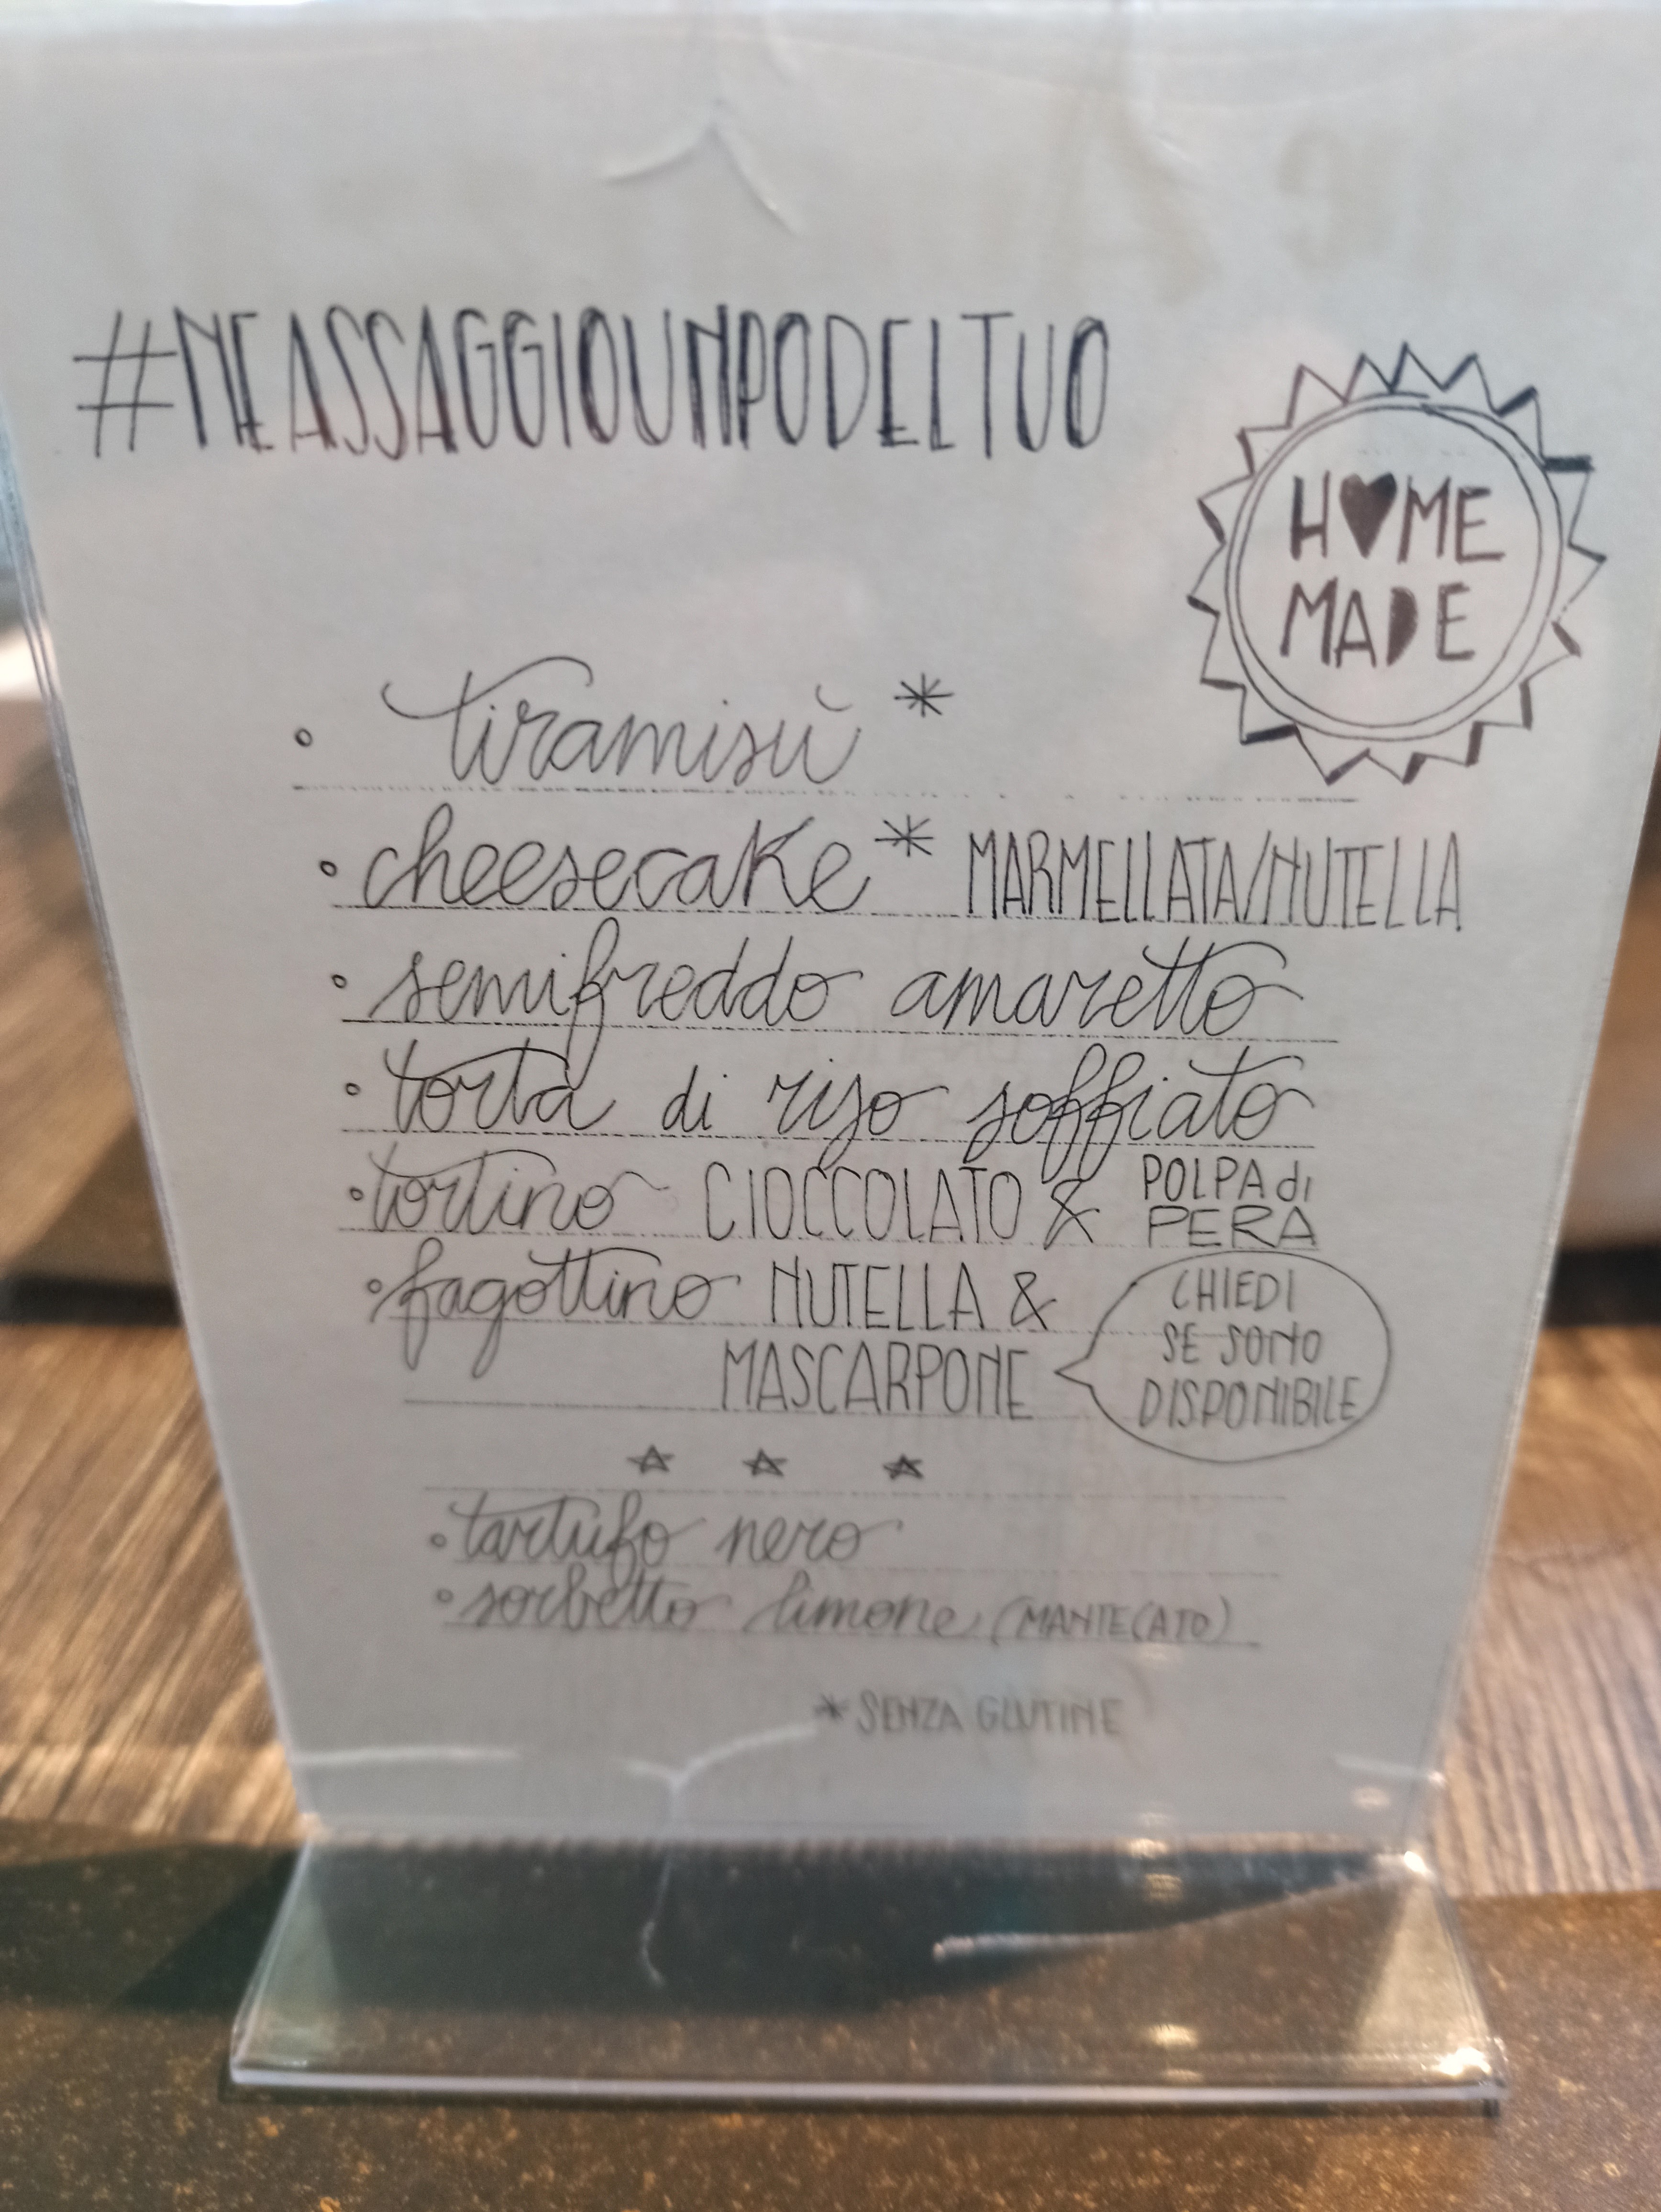 #NEASSAGGIOUNPODELTUO
H♥ME
MADE
• tiramisù *
• cheesecake * MARMELLATA/NUTELLA
• semifreddo amaretto
• torta di riso soffiato
• tortino CIOCCOLATO & POLPA di
PERA
• fagottino NUTELLA &
MASCARPONE
CHIEDI
SE SONO
DISPONIBILE
☆ ☆ ☆
• tartufo nero
• sorbetto limone (MANTECATO)
* SENZA GLUTINE